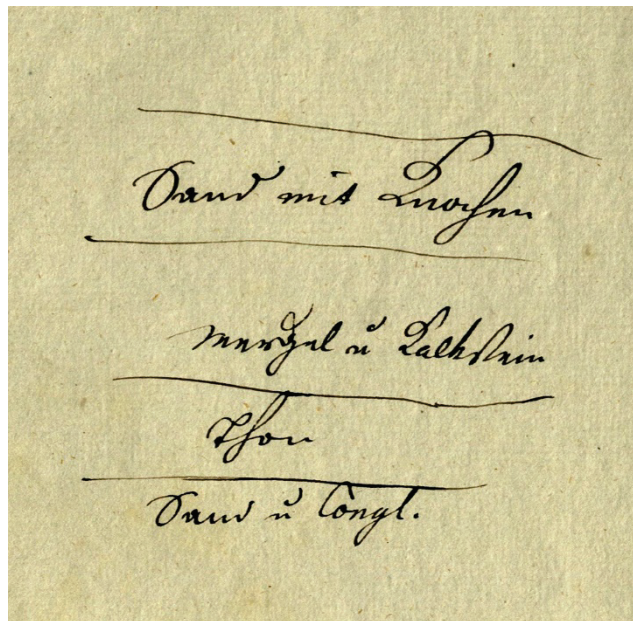 Sand mit Knochen
Mergel u Kalkstein
Thon
Sand u Congl.